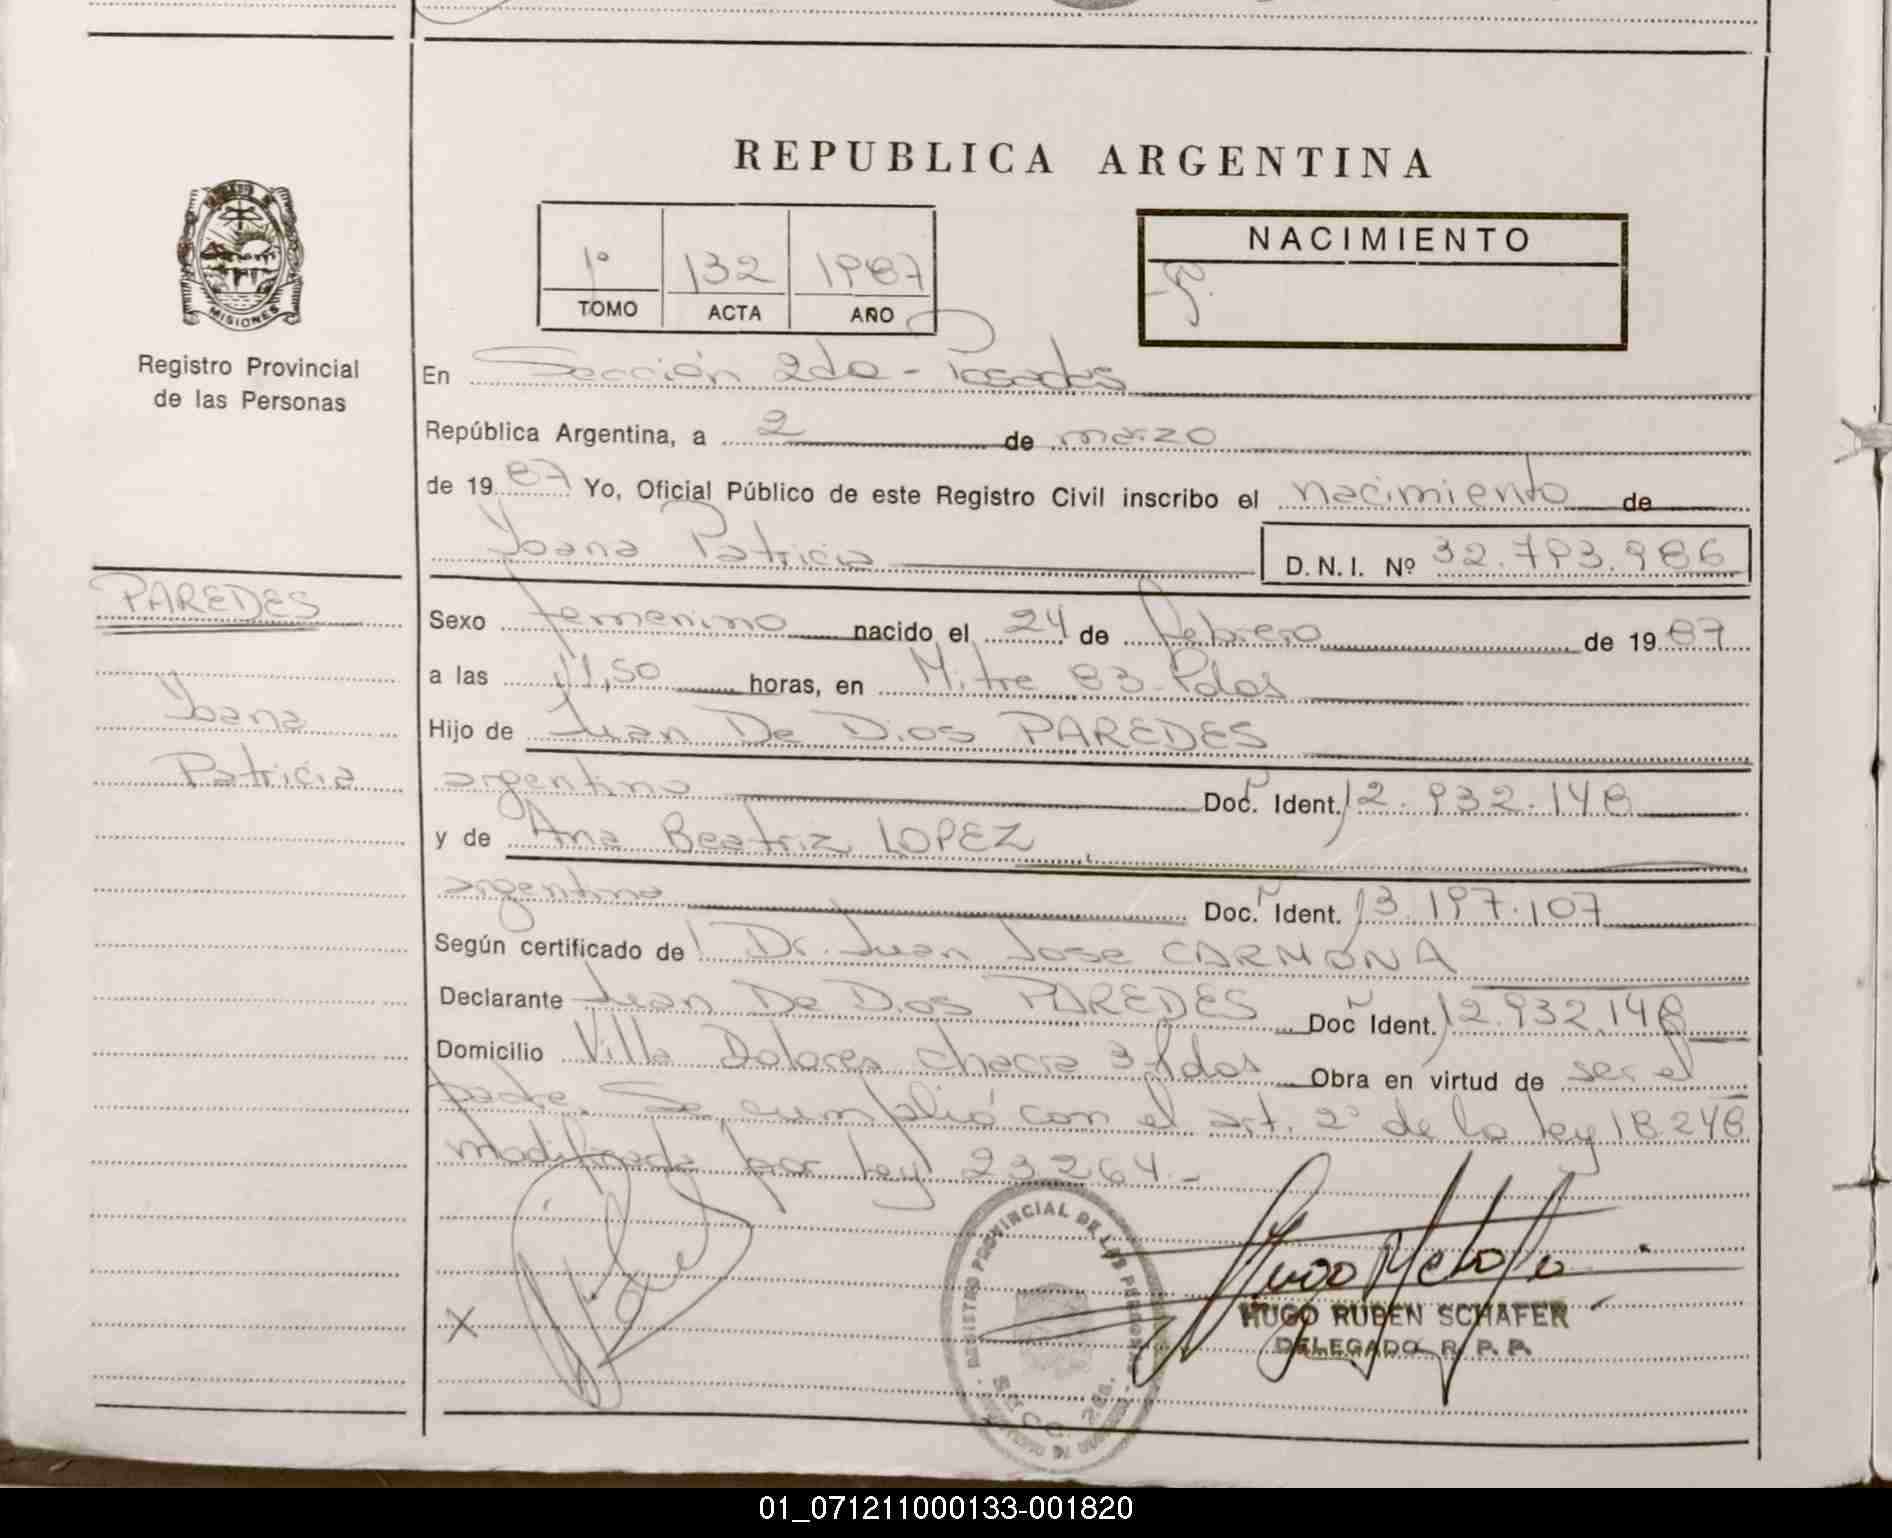 REPUBLICA ARGENTINA
1º 132 1987
TOMO ACTA AÑO
NACIMIENTO
MISIONES
Registro Provincial
de las Personas
En Sección 2da - Posadas
República Argentina, a 2 de marzo
de 19 87 Yo, Oficial Público de este Registro Civil inscribo el nacimiento de
Yoana Patricia D.N.I. Nº 32.793.986
PAREDES
Yoana
Patricia
Sexo femenino nacido el 24 de febrero de 19 87
a las 11,50 horas, en Mitre 83 - Pdas
Hijo de Juan De Dios PAREDES
argentino Doc. Ident. 12.932.148
y de Ana Beatriz LOPEZ
argentina Doc. Ident. 13.197.107
Según certificado de Dr. Juan Jose CARMONA
Declarante Juan De Dios PAREDES Doc Ident. 12.932.148
Domicilio Villa Dolores chacra 3 Pdas Obra en virtud de ser el
padre. Se cumplió con el art. 2º de la ley 18.248
modificada por ley 23.264.-
REGISTRO PROVINCIAL DE LAS PERSONAS
HUGO RUBEN SCHAFER
DELEGADO R. P. P.
01_071211000133-001820